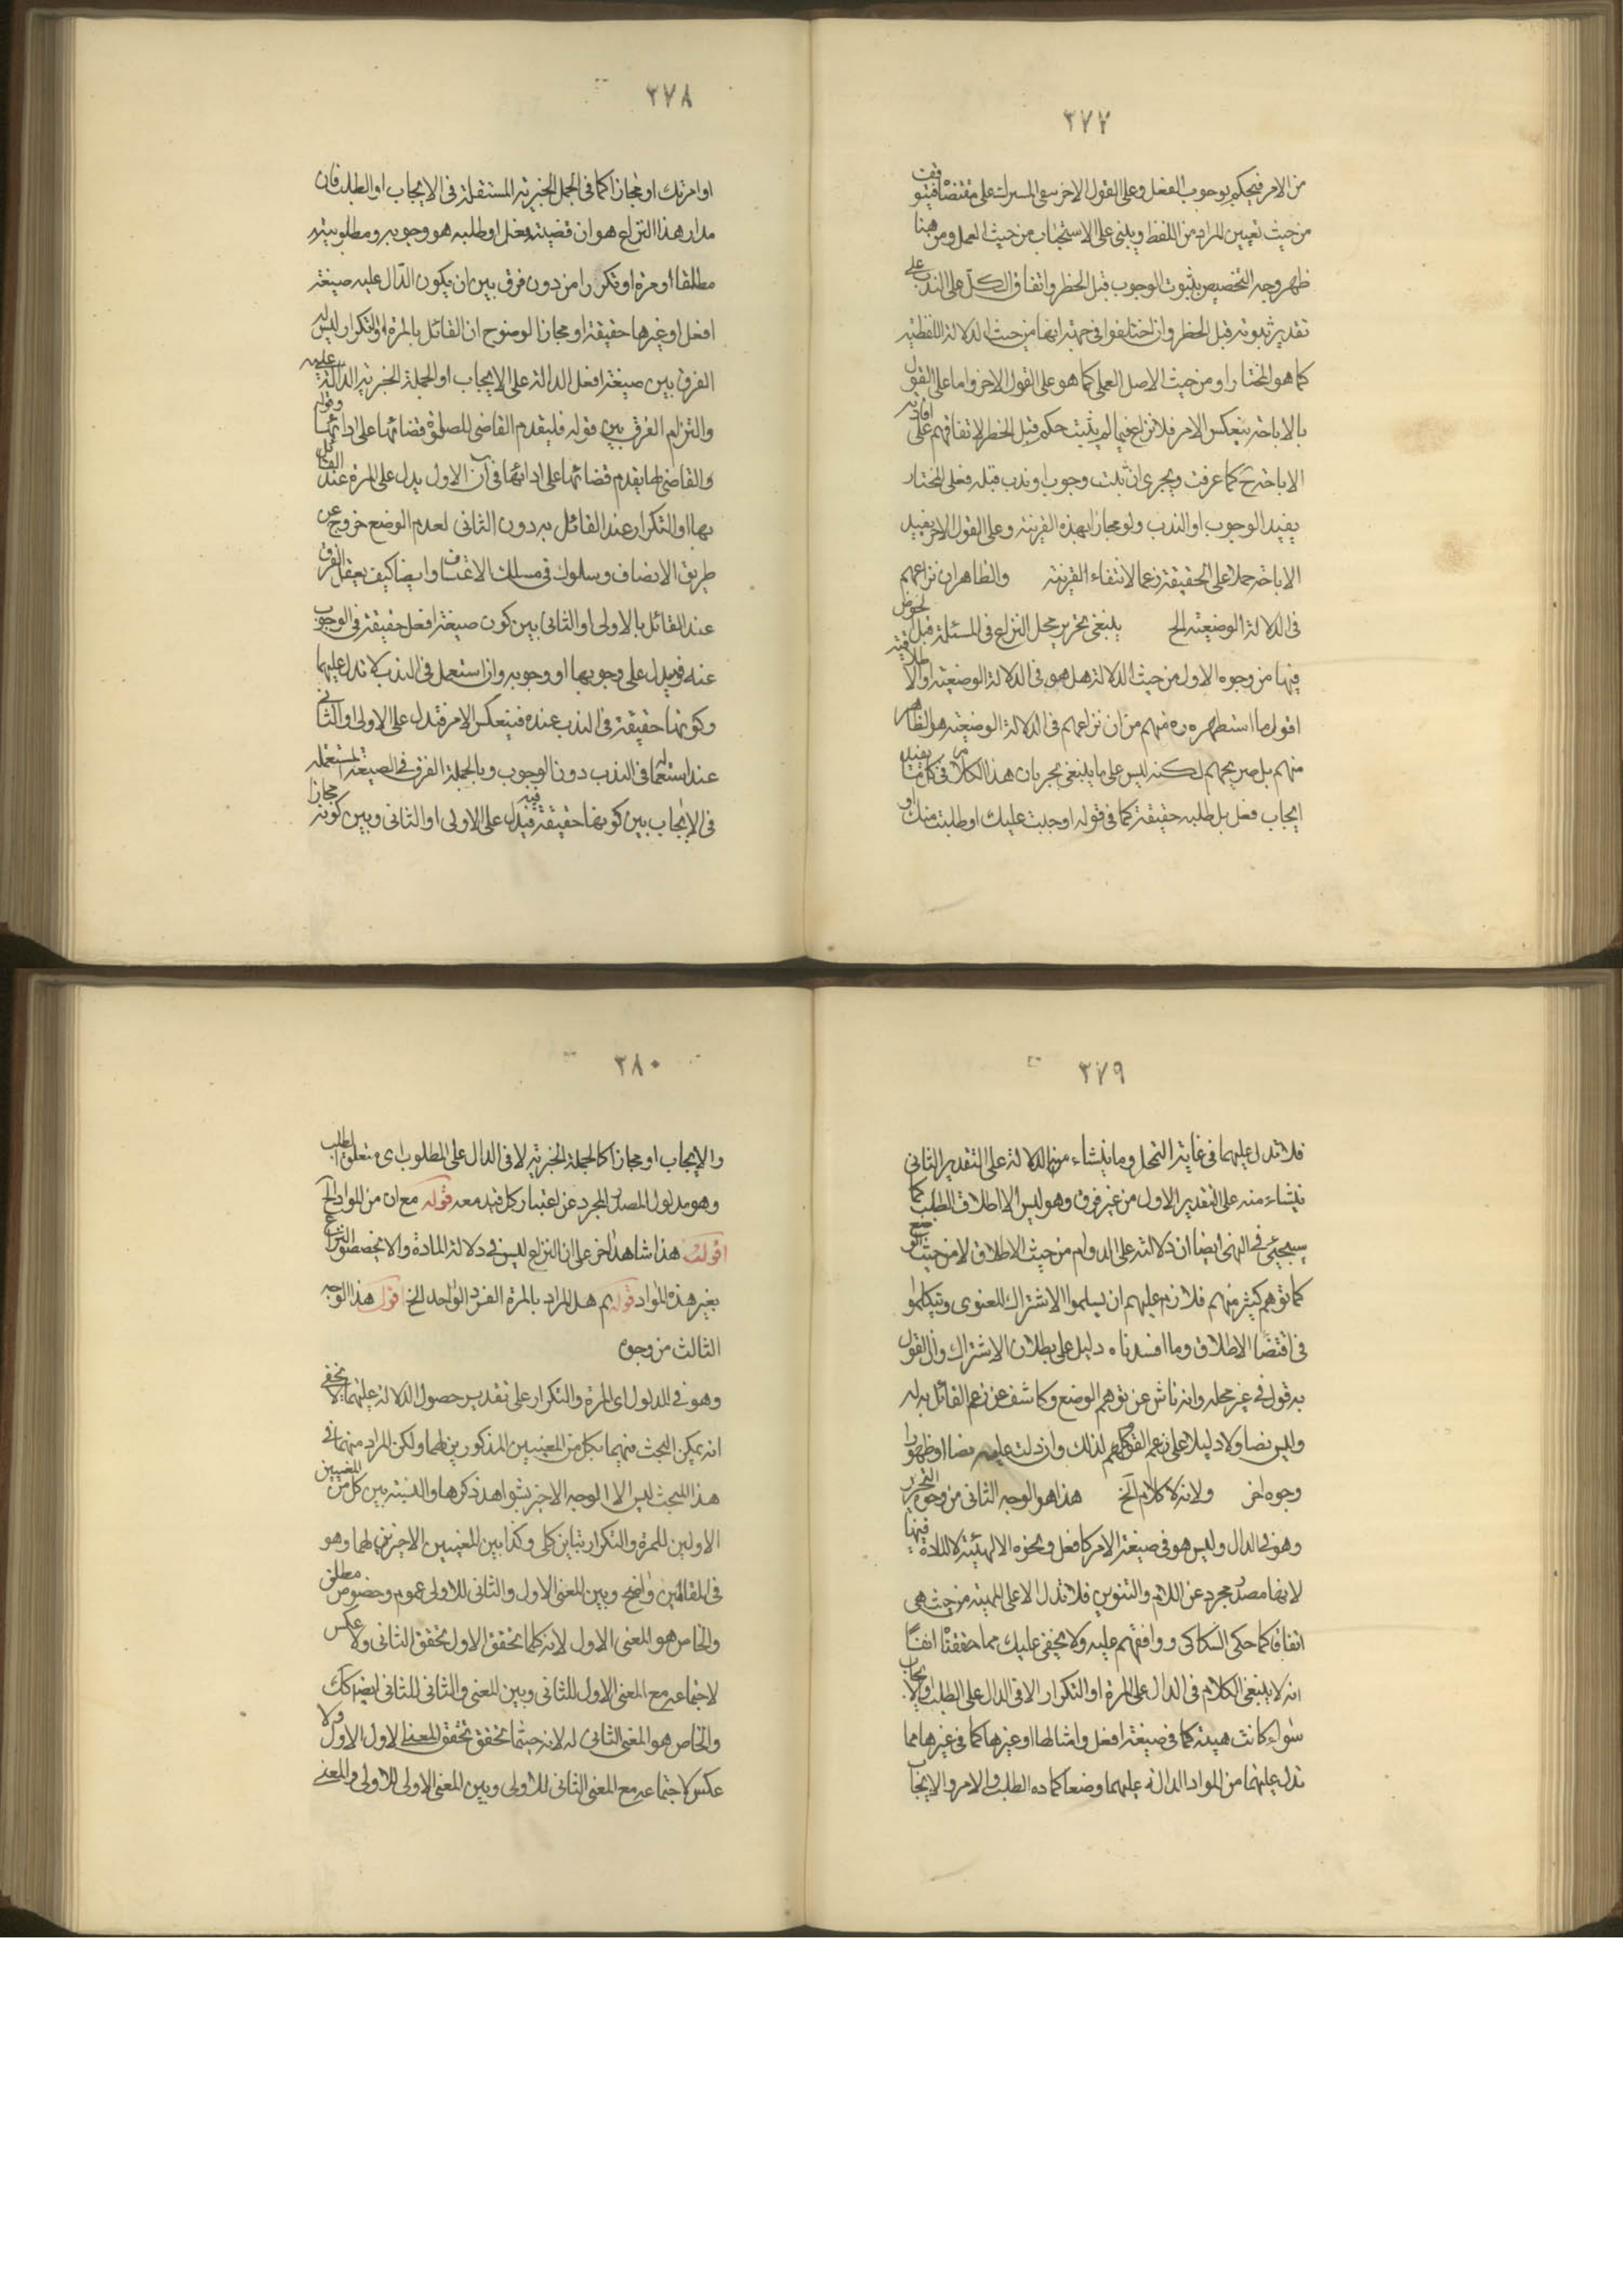 ٣٧٧
من الامر فيحكم بوجوب الفعل وعلى القول الاخر سقى المسرك على مقتضاه فيتوقف
من حيث تعيين المراد من اللفظ ويبنى على الاستحباب من حيث العمل ومن هنا
ظهر وجه التخصيص بثبوت الوجوب قبل الحظر واتفاق الكل على الندب على
تقدير ثبوته قبل الحظر وان اختلفوا فى جهته انها من حيث الدلالة اللفظية
كما هو المختار او من حيث الاصل العملى كما هو على القول الاخر واما على القول
بالاباحة ينعكس الامر فلا نزاع فيما لم يثبت حكم قبل الحظر لاتفاقهم على افادته
الاباحة ح كما عرفت ويجرى ان ثبت وجوب او ندب قبله فعلى المختار
يفيد الوجوب او الندب ولو مجازا بهذه القرينة وعلى القول الاخر يفيد
الاباحة حملا على الحقيقة زعما لانتفاء القرينة والظاهر ان نزاعهم
فى الدلالة الوضعية الخ ينبغى تحرير محل النزاع فى المسئلة قبل الخوض
فيها من وجوه الاول من حيث الدلالة هل هو فى الدلالة الوضعية والاطلاقية
اقول ما استظهره ره منهم من ان نزاعهم فى الدلالة الوضعية هو الظاهر
منهم بل صريحهم لكنه ليس على ما ينبغى بجريان هذا الكلام فى كل ما يفيد
ايجاب فعل بل طلبه حقيقة كما فى قوله اوجبت عليك او طلبت منك او
٣٧٨
او امرتك او مجازا كما فى الجمل الخبرية المستقلة فى الايجاب او الطلب فان
مدار هذا النزاع هو ان قضية فعل او طلبه هو وجوبه ومطلوبيته
مطلقا او مرة او تكرارا من دون فرق بين ان يكون الدّال عليه صيغة
افعل او غيرها حقيقة او مجازا لوضوح ان القائل بالمرة او التكرار ليس له
الفرق بين صيغة افعل الدالة على الايجاب او الجملة الخبرية الدالة عليه
والتزام الفرق بين قوله فليقدم القاضى للصلوة قضائها على ادائها وقوله
والقاضى لها يقدم قضائها على ادائها فى ان الاول يدل على المرة عند القائل
بها او التكرار عند القائل به دون الثانى لعدم الوضع خروج عن
طريق الانصاف وسلوك فى مسلك الاعتساف وايضا كيف يعقل الفرق
عند القائل بالاولى او الثانى بين كون صيغة افعل حقيقة فى الوجوب
عنه فيدل على وجوبها او وجوبه وان استعمل فى الندب لا تدل عليها
وكونها حقيقة فى الندب عنده فينعكس الامر فتدل على الاولى او الثانى
عند استعمالها فى الندب دون الوجوب وبالجملة الفرق فى الصيغة المستعملة
فى الايجاب بين كونها حقيقة فيه فيدل على الاولى او الثانى وبين كونه مجازا
٣٧٩
فلا تدل عليهما فى غاية التمحل وما ينشاء منه الدلالة على التقدير الثانى
ينشاء منه على التقدير الاول من غير فرق وهو ليس الا اطلاق الطلب كما
سيجئ فى النهى ايضا ان دلالته على الدوام من حيث الاطلاق لا من حيث الوضع
كما توهم كثير منهم فلازم عليهم ان يسلموا الاشتراك المعنوى ويتكلموا
فى اقتضا الاطلاق وما افسدناه دليل على بطلان الاشتراك وان القول
به قول فى غير محله وانه ناش عن توهم الوضع وكاشف عن زعم القائل به له
وليس نصا ولا دليلا على زعم القوم كلهم لذلك وان دلت عليه نصا او ظهورا
وجوه اخر ولانه لا كلام الخ هذا هو الوجه الثانى من وجوه التحرير
وهو فى الدال وليس هو فى صيغة الامر كافعل ونحوه الا الهيئة لا المادة فيها
لانها مصدر مجرد عن اللام والتنوين فلا تدل الا على المهية من حيث هى
اتفاقا كما حكى السكاكى ووافقهم عليه ولا يخفى عليك مما حققناه انفا
انه لا ينبغى الكلام فى الدال على المرة او التكرار الا فى الدال على الطلب او الايجاب
سواء كانت هيئة كما فى صيغة افعل وامثالها او غيرها كما فى غيرها مما
تدل عليهما من المواد الدالة عليهما وضعا كماده الطلب والامر والايجاب
٣٨٠
والايجاب او مجازا كالجملة الخبرية لا فى الدال على المطلوب اى متعلق الطلب
وهو مدلول المصدر المجرد عن اعتبار كل قيد معه قوله مع ان من المواد الخ
اقول هذا شاهد اخر على ان النزاع ليس فى دلالة المادة والا تخصص النزاع
بغير هذه المواد قوله ثم هل المراد بالمرة الفرد الواحد الخ اقول هذا الوجه
الثالث من وجوه
وهو فى المدلول اى المرة والتكرار على تقدير حصول الدلالة عليهما لا يخفى
انه يمكن البحث فيهما بكل من المعنيين المذكورين لهما ولكن المراد منهما فى
هذا المبحث ليس الا الوجه الاخير بشواهد ذكرها والنسبة بين كل من المعنيين
الاولين للمرة والتكرار تباين كلى وكذا بين المعنيين الاخيرين لهما وهو
فى المقامين واضح وبين المعنى الاول والثانى للاولى عموم وخصوص مطلق
والخاص هو المعنى الاول لانه كلما تحقق الاول تحقق الثانى ولا عكس
لاجتماعه مع المعنى الاول للثانى وبين المعنى والثانى للثانى ايضا كك
والخاص هو المعنى الثانى له لانه حيثما تحقق تحقق المعنى الاول الاول ولا
عكس لاجتماعه مع المعنى الثانى للاولى وبين المعنى الاولى للاولى والمعنى